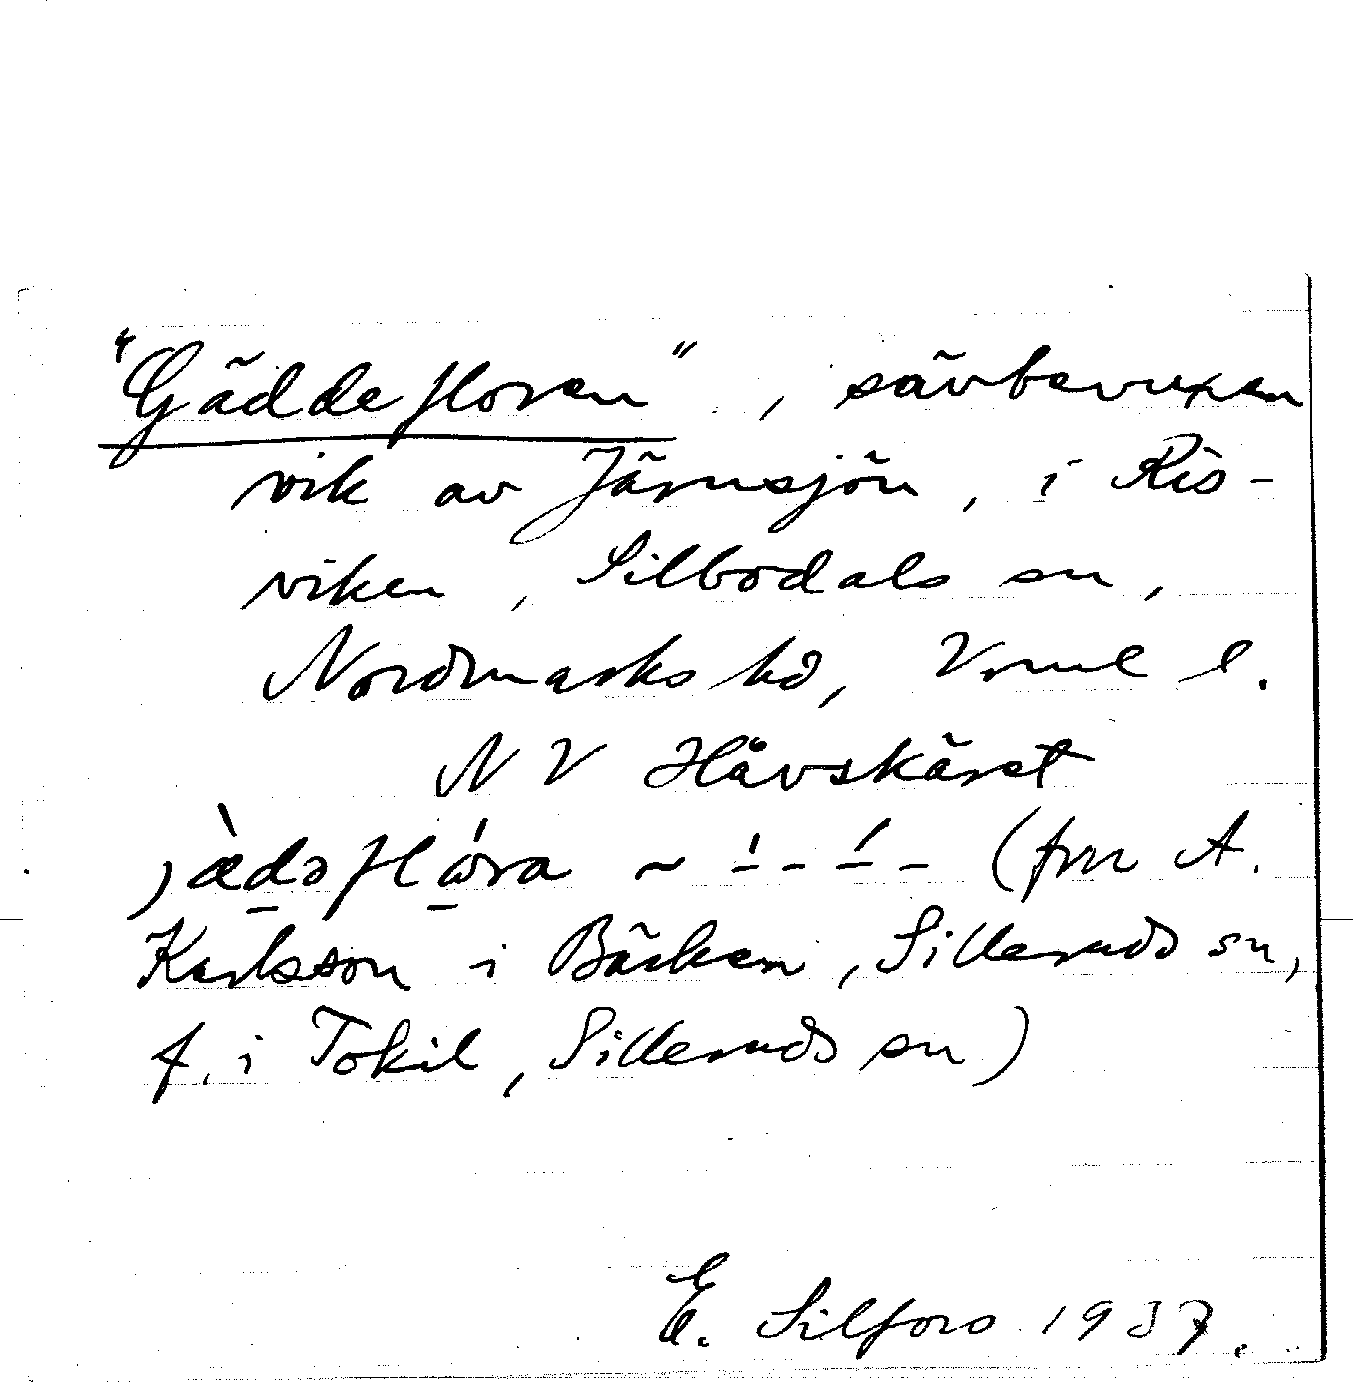 "Gäddefloren", sävbevuxen
vik av Järnsjön, i Ris-
viken, Silbodals sn,
Nordmarks hd, Vrml l.
NV Håvskäret
jæ̀dəflóra ~ –́ – –́ – (fru A.
Karlsson i Bäcken, Silleruds sn,
f. i Tokil, Silleruds sn)
E. Silfors 1937.